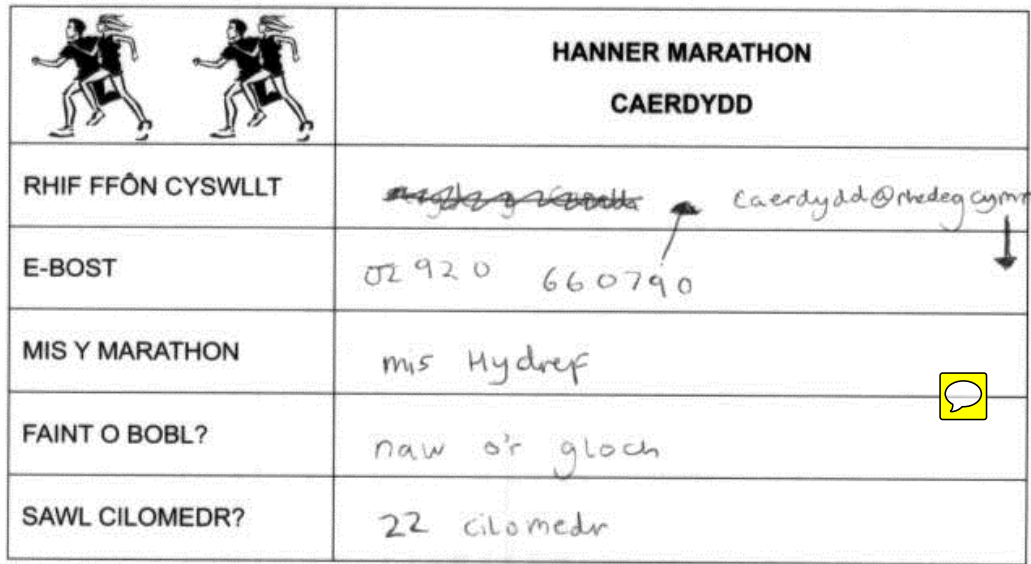 HANNER MARATHON
CAERDYDD
RHIF FFÔN CYSWLLT
caerdydd@rhedegcymr
E-BOST
02920 660790
MIS Y MARATHON
mis Hydref
FAINT O BOBL?
naw o'r gloch
SAWL CILOMEDR?
22 cilomedr